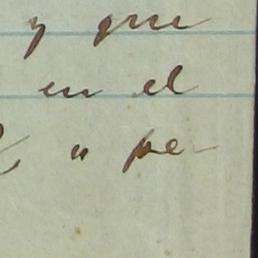 y que
en el
" pe-